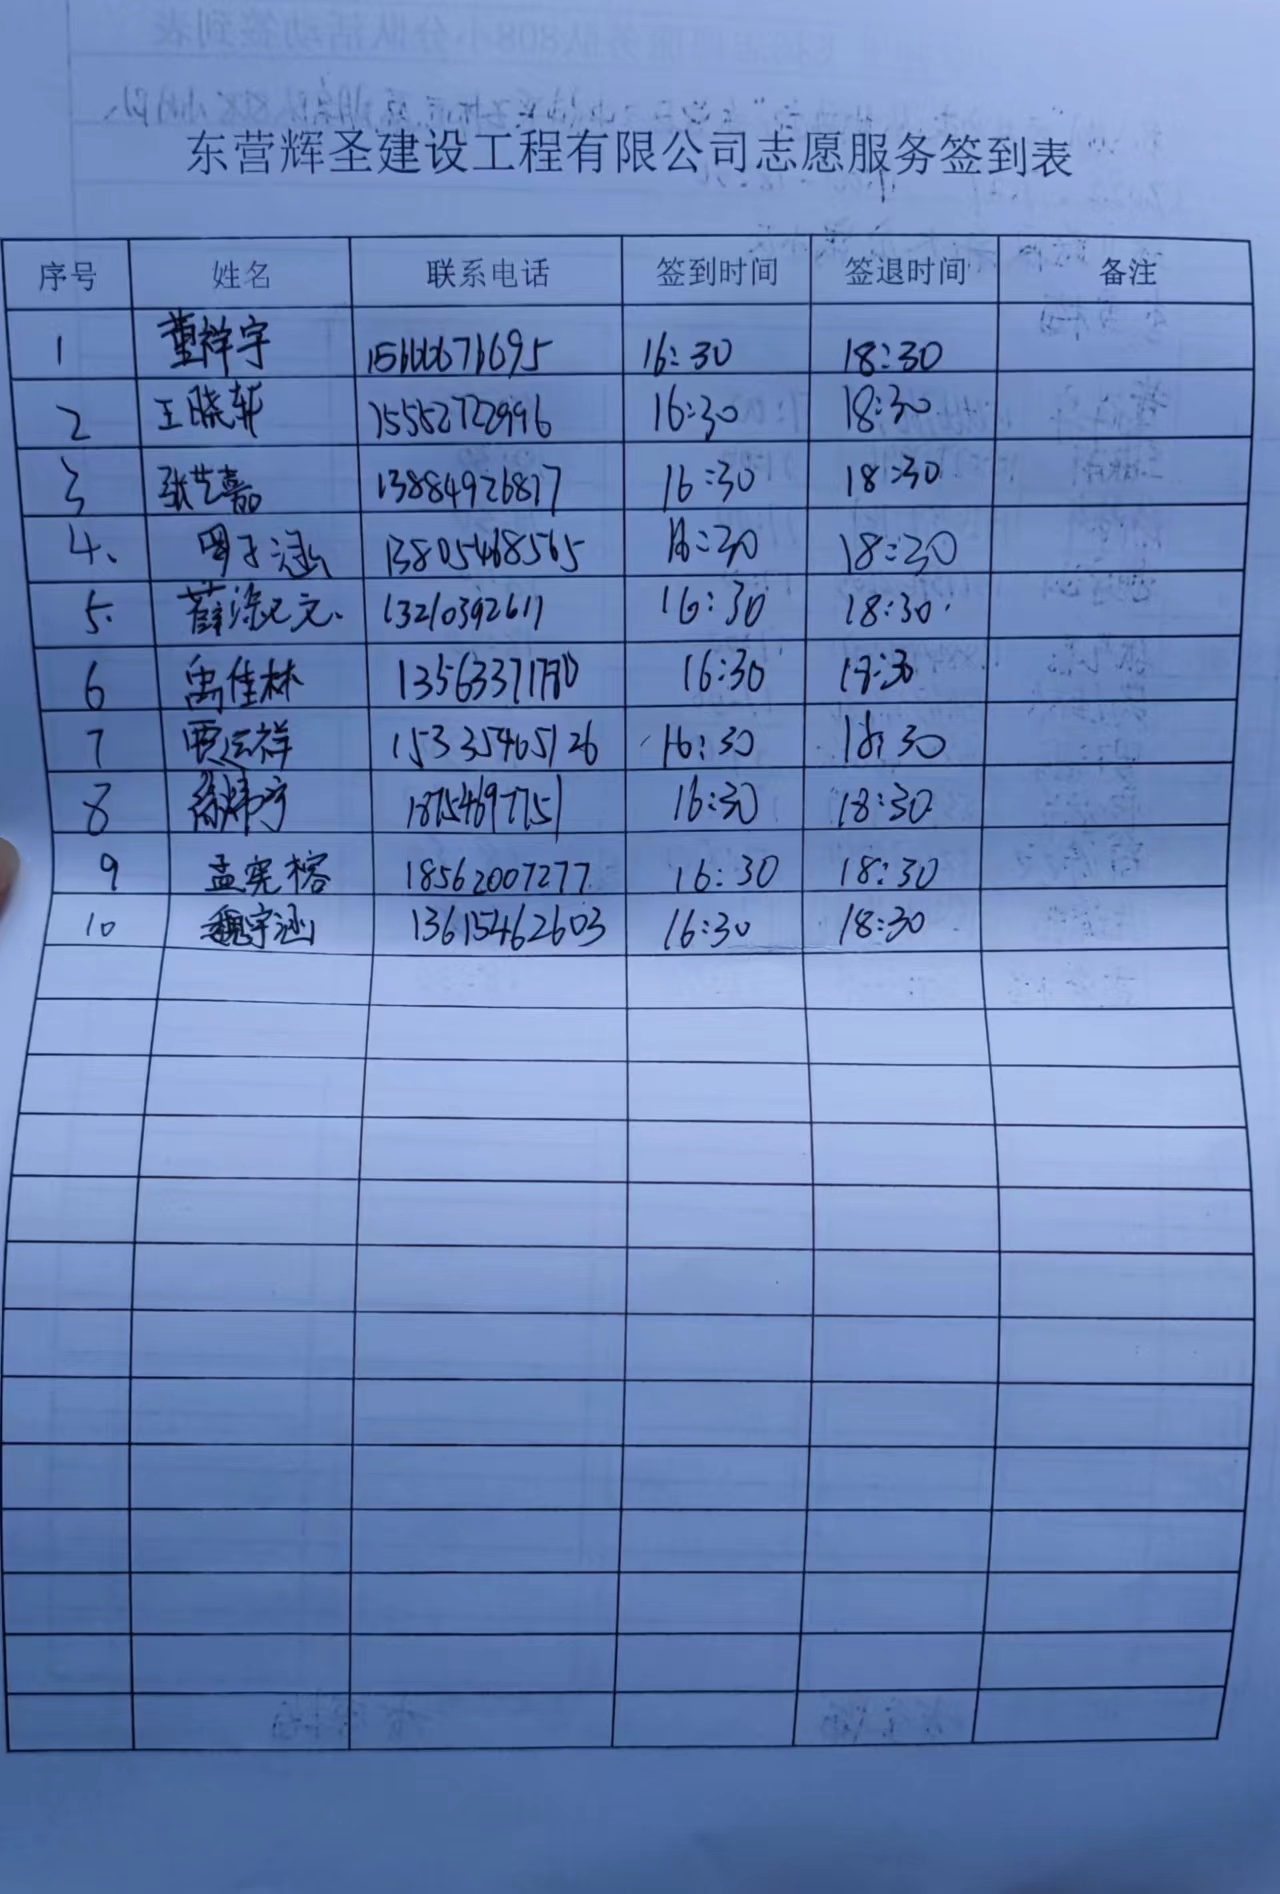 东营辉圣建设工程有限公司志愿服务签到表
序号 姓名 联系电话 签到时间 签退时间 备注
1 董祥宇 16:30 18:30
2 王晓轩 15552722996 16:30 18:30
3 张艺嘉 13884926877 16:30 18:30
4、 周子涵 13805468565 16:30 18:30
5. 薛涤文. 13210392617 16:30 18:30.
6 禹佳林 16:30 18:30
7 贾运祥 15335465126 16:30 18:30
8 徐炜宇 18754697751 16:30 18:30
9 孟宪榕 18562007277 16:30 18:30
10 魏宇涵 13615462603 16:30 18:30